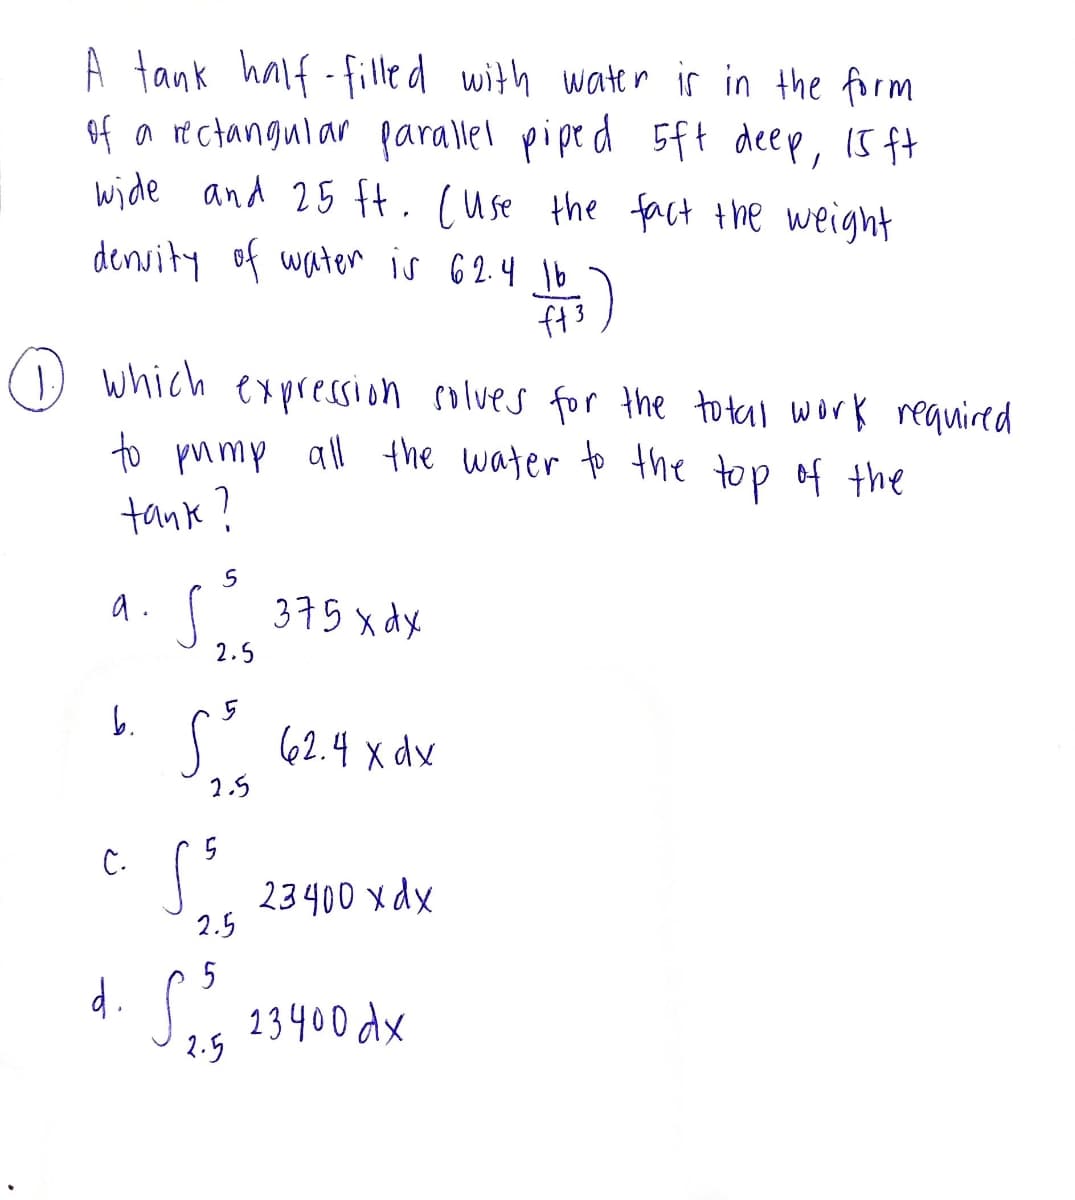 A tank half-filled with water is in the form
of a rectangular parallel piped 5ft deep, 15 ft
wide and 25 ft. (Use the fact the weight
density of water is 62.4 lb/ft³)
1. which expression solves for the total work required
to pump all the water to the top of the
tank?
a. ∫_{2.5}^{5} 375 x dx
b. ∫_{2.5}^{5} 62.4 x dx
c. ∫_{2.5}^{5} 23400 x dx
d. ∫_{2.5}^{5} 23400 dx